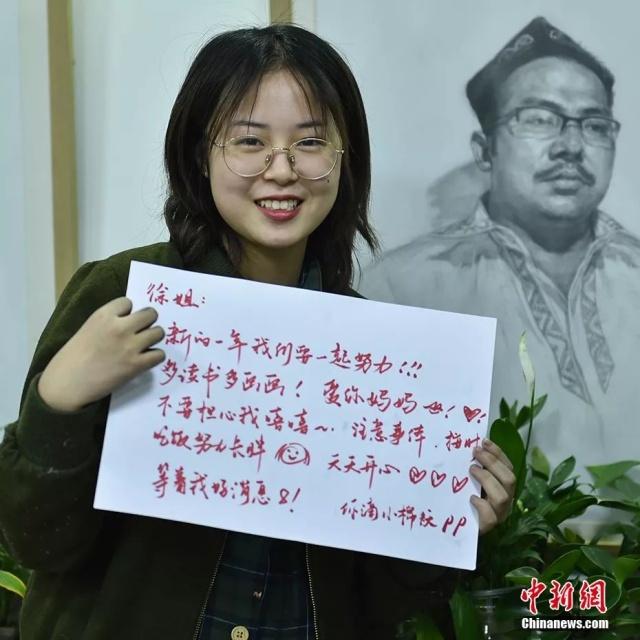 徐姐：
新的一年我们要一起努力！！！
多读书多画画！ 爱你妈妈 ！
不要担心我嘻嘻～ 注意事体，按时
吃饭努力长胖 天天开心
等着我好消息8！
你滴小棉袄PP
中新网
Chinanews.com